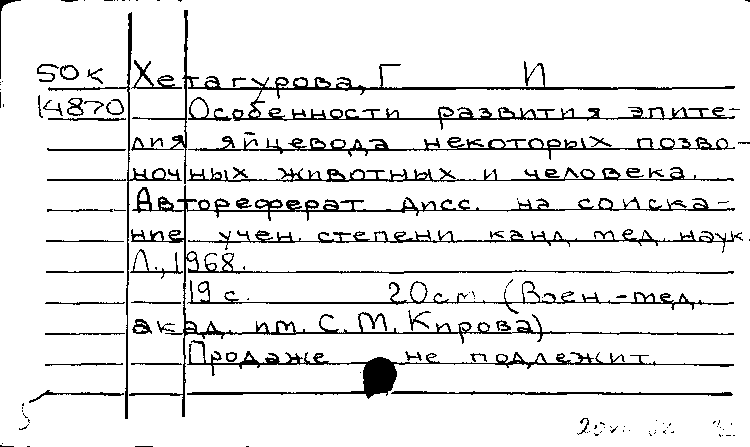 50к Хетагурова, Г И
14870 Особенности развития эпите-
лия яйцевода некоторых позво-
ночных животных и человека.
Автореферат дисс. на соиска-
ние учен. степени канд. мед. наук.
Л., 1968.
19 с. 20 см. (Воен.-мед.
акад. им. С. М. Кирова)
Продаже не подлежит.